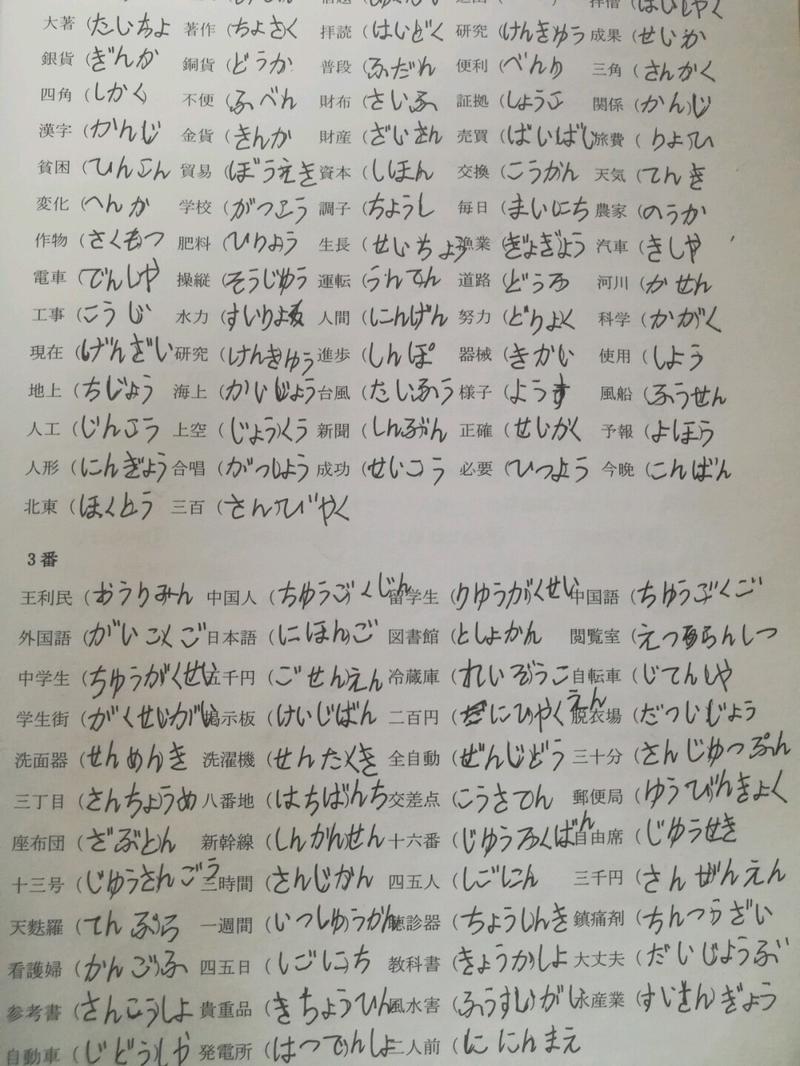 大著（たいちよ 著作（ちょさく 拝読（はいどく 研究（けんきゅう 成果（せいか
銀貨（ぎんか 銅貨（どうか 普段（ふだん 便利（べんり 三角（さんかく
四角（しかく 不便（ふべん 財布（さいふ 証拠（しょうこ 関係（かんじ
漢字（かんじ 金貨（きんか 財産（ざいさん 売買（ばいばい 旅費（りょひ
貧困（ひんこん 貿易（ぼうえき 資本（しほん 交換（こうかん 天気（てんき
変化（へんか 学校（がつこう 調子（ちょうし 毎日（まいにち 農家（のうか
作物（さくもつ 肥料（ひりよう 生長（せいちょう 漁業（ぎょぎょう 汽車（きしや
電車（でんしや 操縦（そうじゅう 運転（うんてん 道路（どうろ 河川（かせん
工事（こうじ 水力（すいりよ 人間（にんげん 努力（どりよく 科学（かがく
現在（げんざい 研究（けんきゅう 進歩（しんぽ 器械（きかい 使用（しよう
地上（ちじょう 海上（かいじょう 台風（たいふう 様子（ようす 風船（ふうせん
人工（じんこう 上空（じょうくう 新聞（しんぶん 正確（せいかく 予報（よほう
人形（にんぎょう 合唱（がつしょう 成功（せいこう 必要（ひつよう 今晩（こんばん
北東（ほくとう 三百（さんびやく
3番
王利民（おうりみん 中国人（ちゆうごくじん 留学生（りゆうがくせい 中国語（ちゆうごくご
外国語（がいこくご 日本語（にほんご 図書館（としょかん 閲覧室（えつらんしつ
中学生（ちゆうがくせい 五千円（ごせんえん 冷蔵庫（れいぞうこ 自転車（じてんしや
学生街（がくせいがい 掲示板（けいじばん 二百円（にひやくえん 脱衣場（だついじょう
洗面器（せんめんき 洗濯機（せんたくき 全自動（ぜんじどう 三十分（さんじゆつぷん
三丁目（さんちょうめ 八番地（はちばんち 交差点（こうさてん 郵便局（ゆうびんきょく
座布団（ざぶとん 新幹線（しんかんせん 十六番（じゆうろくばん 自由席（じゆうせき
十三号（じゆうさんごう 三時間（さんじかん 四五人（しごにん 三千円（さんぜんえん
天麩羅（てんぷら 一週間（いつしゆうかん 聴診器（ちょうしんき 鎮痛剤（ちんつうざい
看護婦（かんごふ 四五日（しごにち 教科書（きょうかしよ 大丈夫（だいじょうぶ
参考書（さんこうしよ 貴重品（きちょうひん 風水害（ふうすいがい 水産業（すいさんぎょう
自動車（じどうしや 発電所（はつでんしょ 二人前（ににんまえ